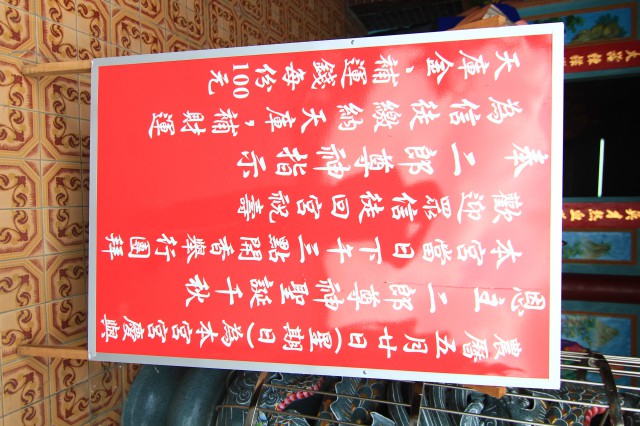 農曆五月廿日(星期日)為本宮宮慶與
恩主二郎尊神聖誕千秋
本宮當日下午三點開香舉行團拜
歡迎眾信徒回宮祝壽
奉二郎尊神指示
為信徒繳納天庫，補財運
天庫金、補運錢每份100元